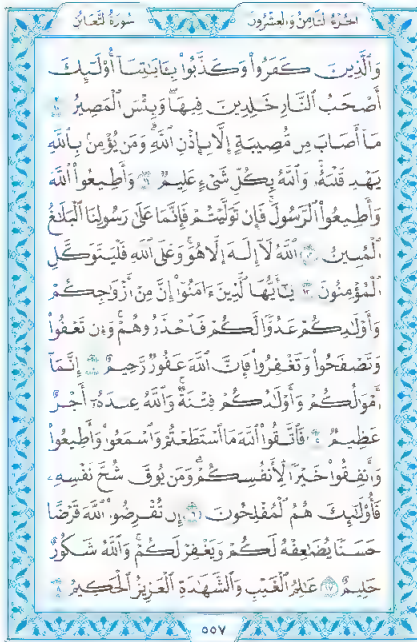 الجزء الثامن والعشرون سورة التغابن
وَالَّذِينَ كَفَرُوا۟ وَكَذَّبُوا۟ بِـَٔايَـٰتِنَآ أُو۟لَـٰٓئِكَ
أَصْحَـٰبُ النَّارِ خَـٰلِدِينَ فِيهَا ۖ وَبِئْسَ الْمَصِيرُ ١٠
مَآ أَصَابَ مِن مُّصِيبَةٍ إِلَّا بِإِذْنِ اللَّهِ ۗ وَمَن يُؤْمِنۢ بِاللَّهِ
يَهْدِ قَلْبَهُۥ ۚ وَاللَّهُ بِكُلِّ شَىْءٍ عَلِيمٌ ١١ وَأَطِيعُوا۟ اللَّهَ
وَأَطِيعُوا۟ الرَّسُولَ ۚ فَإِن تَوَلَّيْتُمْ فَإِنَّمَا عَلَىٰ رَسُولِنَا الْبَلَـٰغُ
الْمُبِينُ ١٢ اللَّهُ لَآ إِلَـٰهَ إِلَّا هُوَ ۚ وَعَلَى اللَّهِ فَلْيَتَوَكَّلِ
الْمُؤْمِنُونَ ١٣ يَـٰٓأَيُّهَا الَّذِينَ ءَامَنُوٓا۟ إِنَّ مِنْ أَزْوَٰجِكُمْ
وَأَوْلَـٰدِكُمْ عَدُوًّا لَّكُمْ فَاحْذَرُوهُمْ ۚ وَإِن تَعْفُوا۟
وَتَصْفَحُوا۟ وَتَغْفِرُوا۟ فَإِنَّ اللَّهَ غَفُورٌ رَّحِيمٌ ١٤ إِنَّمَآ
أَمْوَٰلُكُمْ وَأَوْلَـٰدُكُمْ فِتْنَةٌ ۚ وَاللَّهُ عِندَهُۥٓ أَجْرٌ
عَظِيمٌ ١٥ فَاتَّقُوا۟ اللَّهَ مَا اسْتَطَعْتُمْ وَاسْمَعُوا۟ وَأَطِيعُوا۟
وَأَنفِقُوا۟ خَيْرًا لِّأَنفُسِكُمْ ۗ وَمَن يُوقَ شُحَّ نَفْسِهِۦ
فَأُو۟لَـٰٓئِكَ هُمُ الْمُفْلِحُونَ ١٦ إِن تُقْرِضُوا۟ اللَّهَ قَرْضًا
حَسَنًا يُضَـٰعِفْهُ لَكُمْ وَيَغْفِرْ لَكُمْ ۚ وَاللَّهُ شَكُورٌ
حَلِيمٌ ١٧ عَـٰلِمُ الْغَيْبِ وَالشَّهَـٰدَةِ الْعَزِيزُ الْحَكِيمُ ١٨
٥٥٧